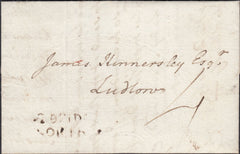 James Kinnersley Esqr
Ludlow
4